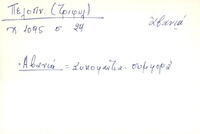 Πελοπν. (Τριφυλ)
χ 1095 σ 27
ἀβανιά
Ἀβανιά = συκοφαντία συμφορά